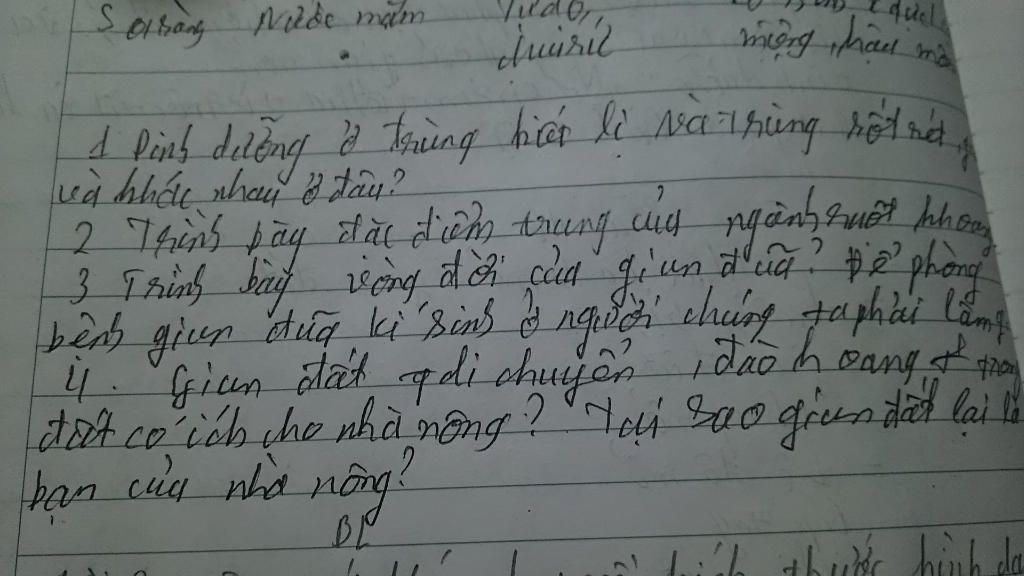 Nước mắm
miệng, hậu mô
1 Dinh dưỡng ở trùng kiết lị và trùng sốt rét
và khác nhau ở đâu?
2 Trình bày đặc điểm trung của ngành ruột khoang
3 Trình bày vòng đời của giun đũa? Để phòng
bệnh giun đũa kí sinh ở người chúng ta phải làm g
4. Giun đất di chuyển, đào hoang tr
đất có ích cho nhà nông? Tại sao giun đất lại là
bạn của nhà nông?
BL
thước hình dạ